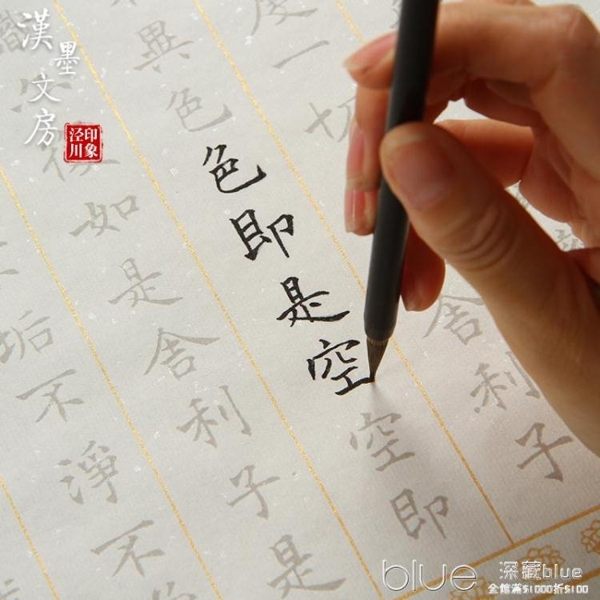 漢墨文房
印象
泾川
度一切
舍利子
異色色即是空空即
識亦復如是舍利子是
垢不淨不
blue 深藏blue
全館滿$1000折$100